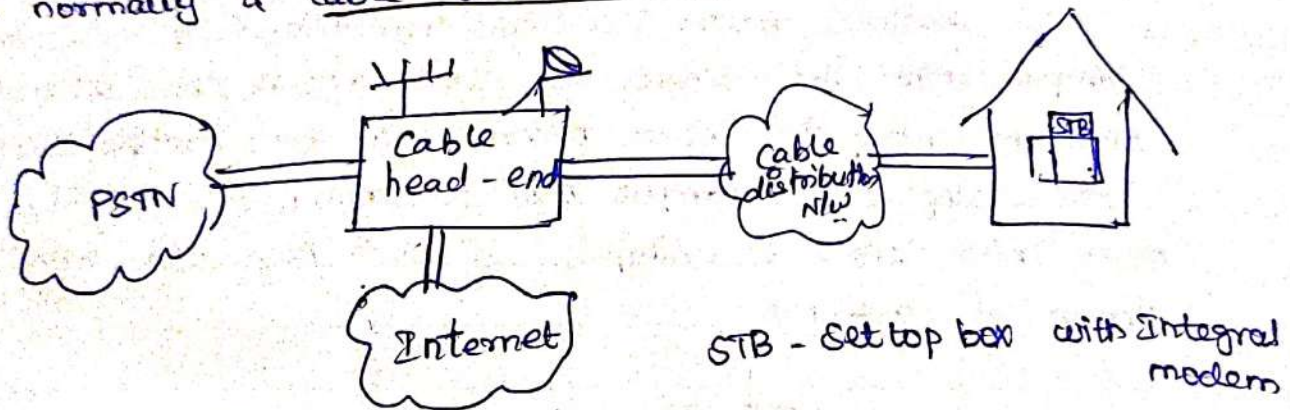 normally a cable
PSTN
Cable
head-end
Cable
distribution
N/W
STB
Internet
STB - Set top box with Integral
modem